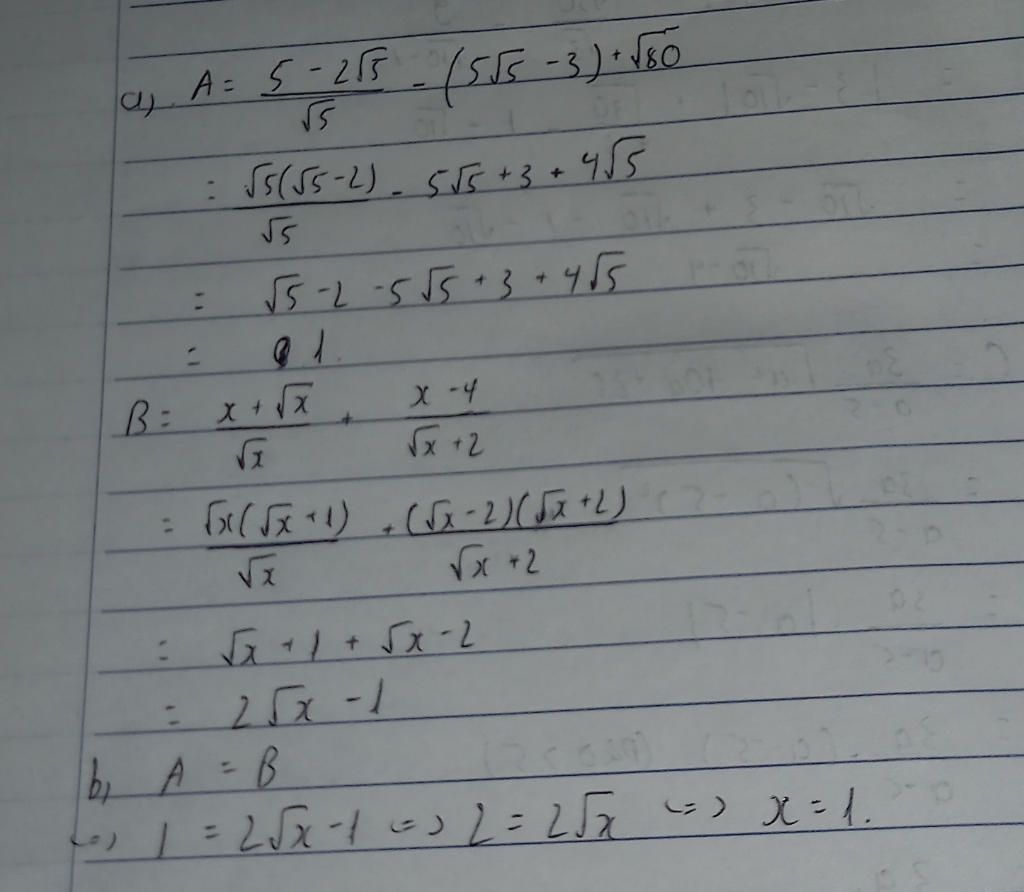 a), A = (5 - 2√5)/√5 - (5√5 - 3) + √80
= √5(√5 - 2)/√5 - 5√5 + 3 + 4√5
= √5 - 2 - 5√5 + 3 + 4√5
= 1.
B = (x + √x)/√x + (x - 4)/(√x + 2)
= √x(√x + 1)/√x + (√x - 2)(√x + 2)/(√x + 2)
= √x + 1 + √x - 2
= 2√x - 1
b, A = B
<=> 1 = 2√x - 1 <=> 2 = 2√x <=> x = 1.